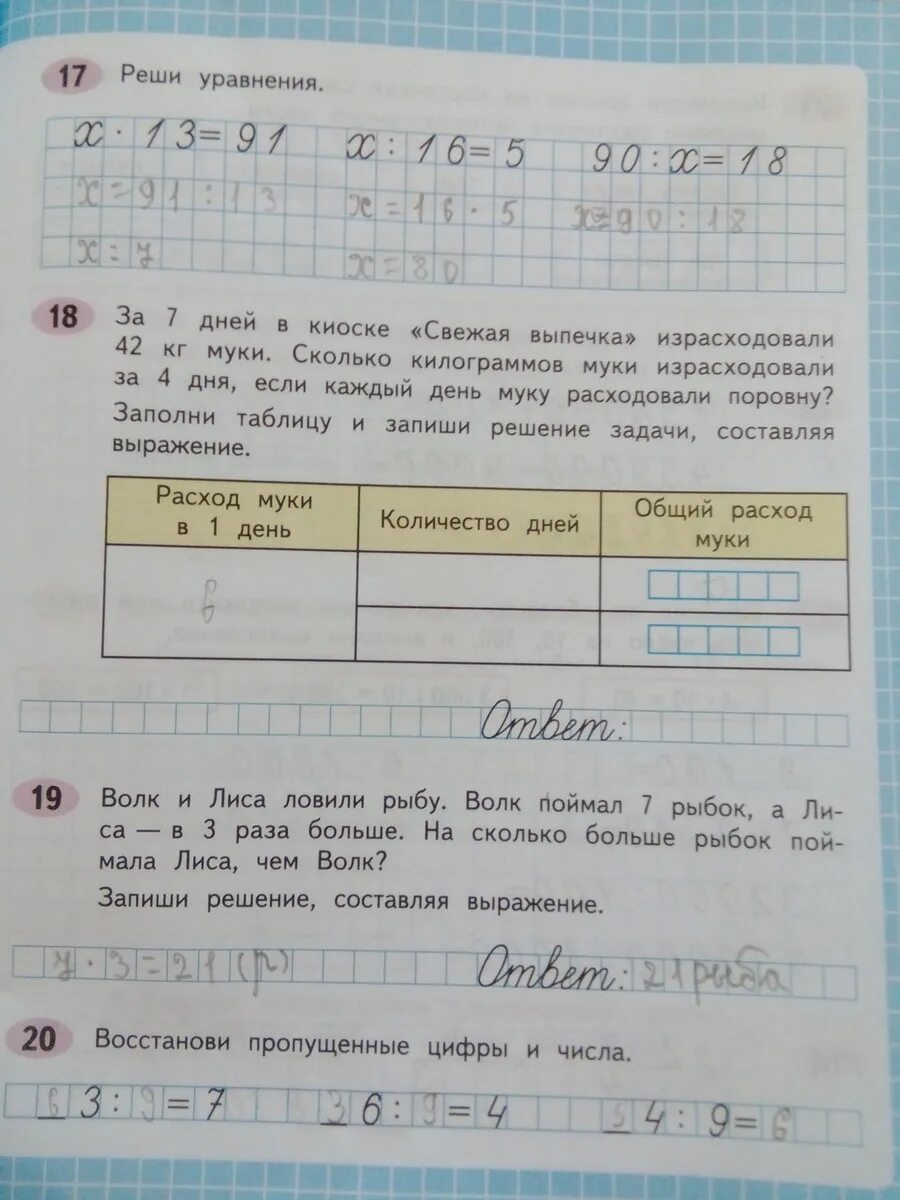 17 Реши уравнения.
x · 13 = 91 x : 16 = 5 90 : x = 18
x = 91 : 13 x = 16 · 5 x = 90 : 18
x = 7 x = 80
18 За 7 дней в киоске «Свежая выпечка» израсходовали
42 кг муки. Сколько килограммов муки израсходовали
за 4 дня, если каждый день муку расходовали поровну?
Заполни таблицу и запиши решение задачи, составляя
выражение.
Расход муки в 1 день Количество дней Общий расход муки
Ответ:
19 Волк и Лиса ловили рыбу. Волк поймал 7 рыбок, а Ли-
са — в 3 раза больше. На сколько больше рыбок пой-
мала Лиса, чем Волк?
Запиши решение, составляя выражение.
7 · 3 = 21 (р) Ответ: 21 рыба
20 Восстанови пропущенные цифры и числа.
63 : 9 = 7 36 : 9 = 4 54 : 9 = 6